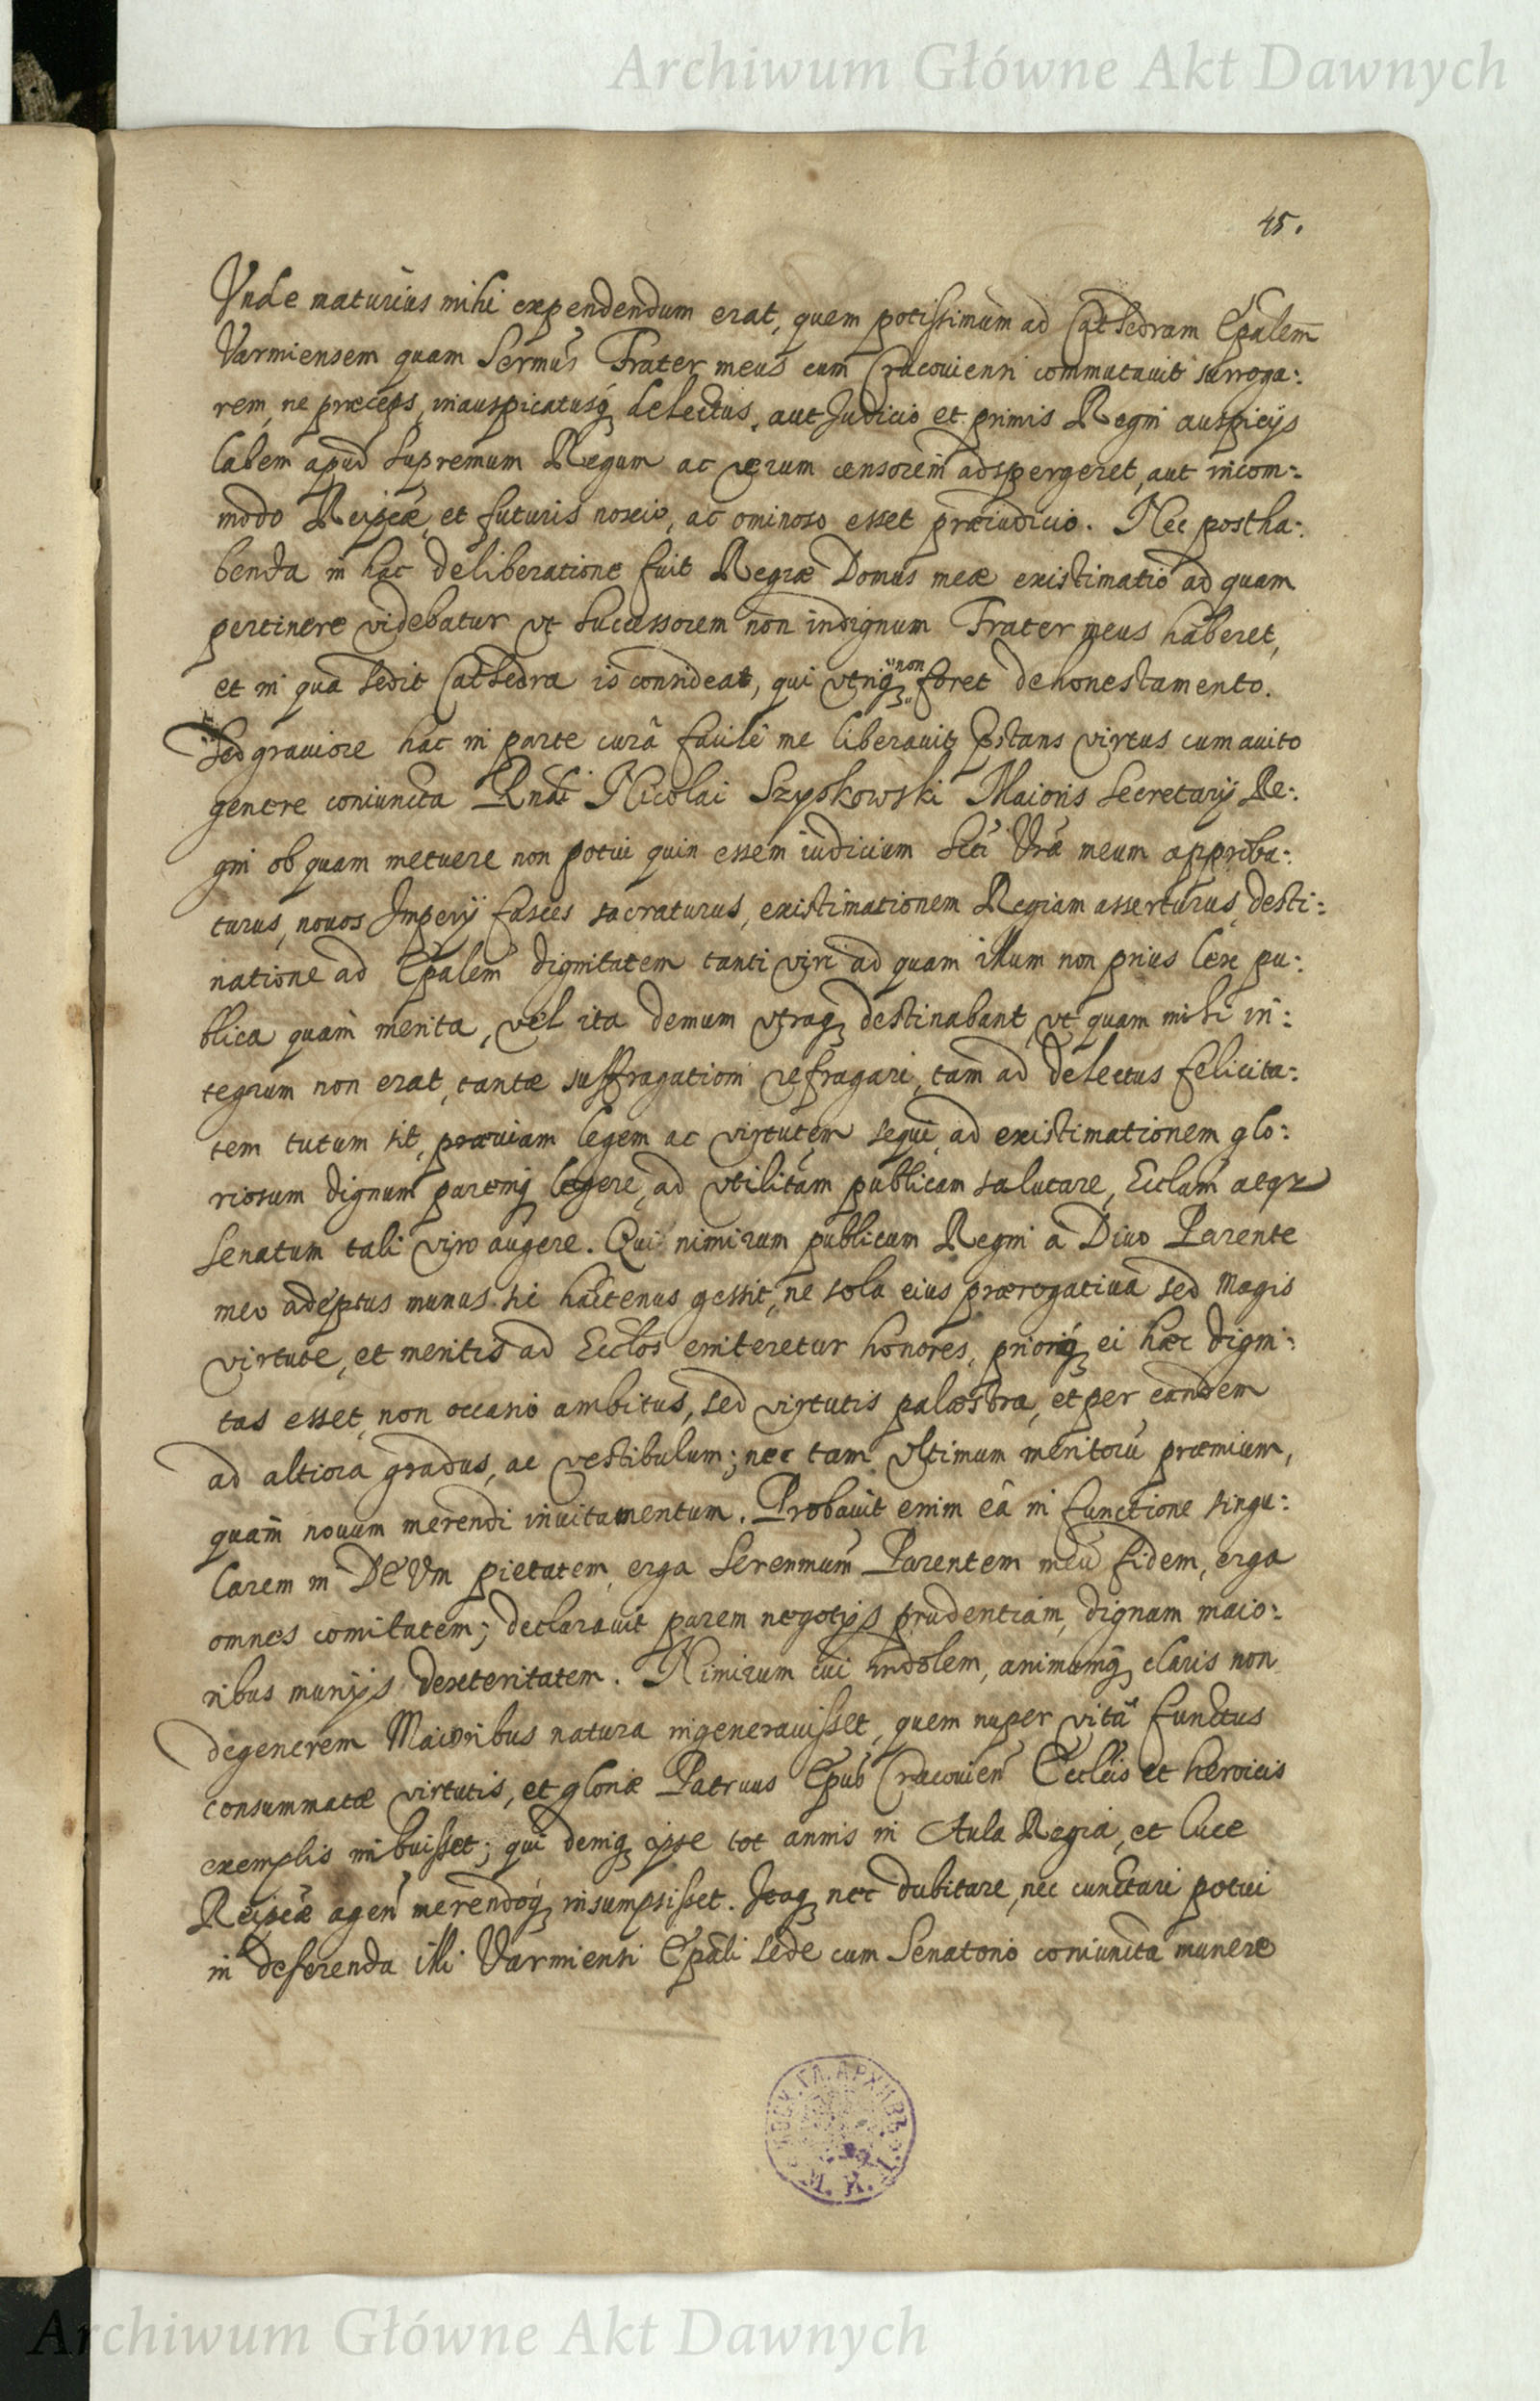 Archiwum Główne Akt Dawnych
45.
Vnde maturius mihi expendendum erat, quem potissimum ad Cathedram Epalem
Varmiensem quam Sermus Frater meus cum Cracouiensi commutauit surroga:
rem, ne præceps, inauspicatusq delectus, aut Judicio et primis Regni auspicijs
labem apud Supremum Regum ac rerum censorem adspergeret, aut incom:
modo Reipcæ, et futuris noxio, ac ominoso esset præiudicio. Nec postha:
benda in hac deliberatione fuit Regiæ Domus meæ existimatio ad quam
pertinere videbatur vt Successorem non indignum Frater meus haberet,
et in qua sedit Cathedra is consideat, qui vtriq non foret dehonestamento.
Sed grauiore hac in parte curâ facile me liberauit pstans virtus cum auito
genere coniuncta Rndi Nicolai Szyskowski Maioris Secretarij Re:
gni ob quam metuere non potui quin essem iudicium Stti Vræ meum approba:
turus, nouos Imperij fasces sacraturus, existimationem Regiam asserturus, desti:
natione ad Epalem dignitatem tanti viri ad quam illum non prius lex pu:
blica quam merita, vel ita demum vtraq destinabant, vt quam mihi in:
tegrum non erat, tantæ suffragationi refragari, tam ad delectus felicita:
tem tutum sit, præuiam legem ac virtutem sequi, ad existimationem glo:
riosum dignum paremq legere, ad vtilitam publicam salutare, Ecclam atq
Senatum tali viro augere. Qui nimirum publicum Regni a Diuo Parente
meo adeptus munus sic hactenus gessit, ne sola eius prærogatiua sed magis
virtute, et meritis ad Ecclos eniteretur honores, priorq ei hæc digni:
tas esset, non occasio ambitus, sed virtutis palæstra, et per eandem
ad altiora gradus, ac vestibulum; nec tam vltimum meritorũ præmium,
quam nouum merendi inuitamentum. Probauit enim eâ in functione singu:
larem in DEVm pietatem, erga Serenmum Parentem meũ fidem, erga
omnes comitatem; declarauit parem negotijs prudentiam, dignam maio:
ribus munijs dexteritatem. Nimirum cui indolem, animumq claris non
degenerem Maioribus natura ingenerauisset, quem nuper vitâ functus
consummatæ virtutis, et gloriæ Patruus Epus Cracouien Eccleis et heroicis
exemplis imbuisset; qui deniq ipse tot annis in Aula Regia, et luce
Reipcæ agen merendoq insumpsisset. Itaq nec dubitare, nec cunctari potui
in deferenda illi Varmiensi Epali sede cum Senatorio coniuncta munere
Archiwum Główne Akt Dawnych